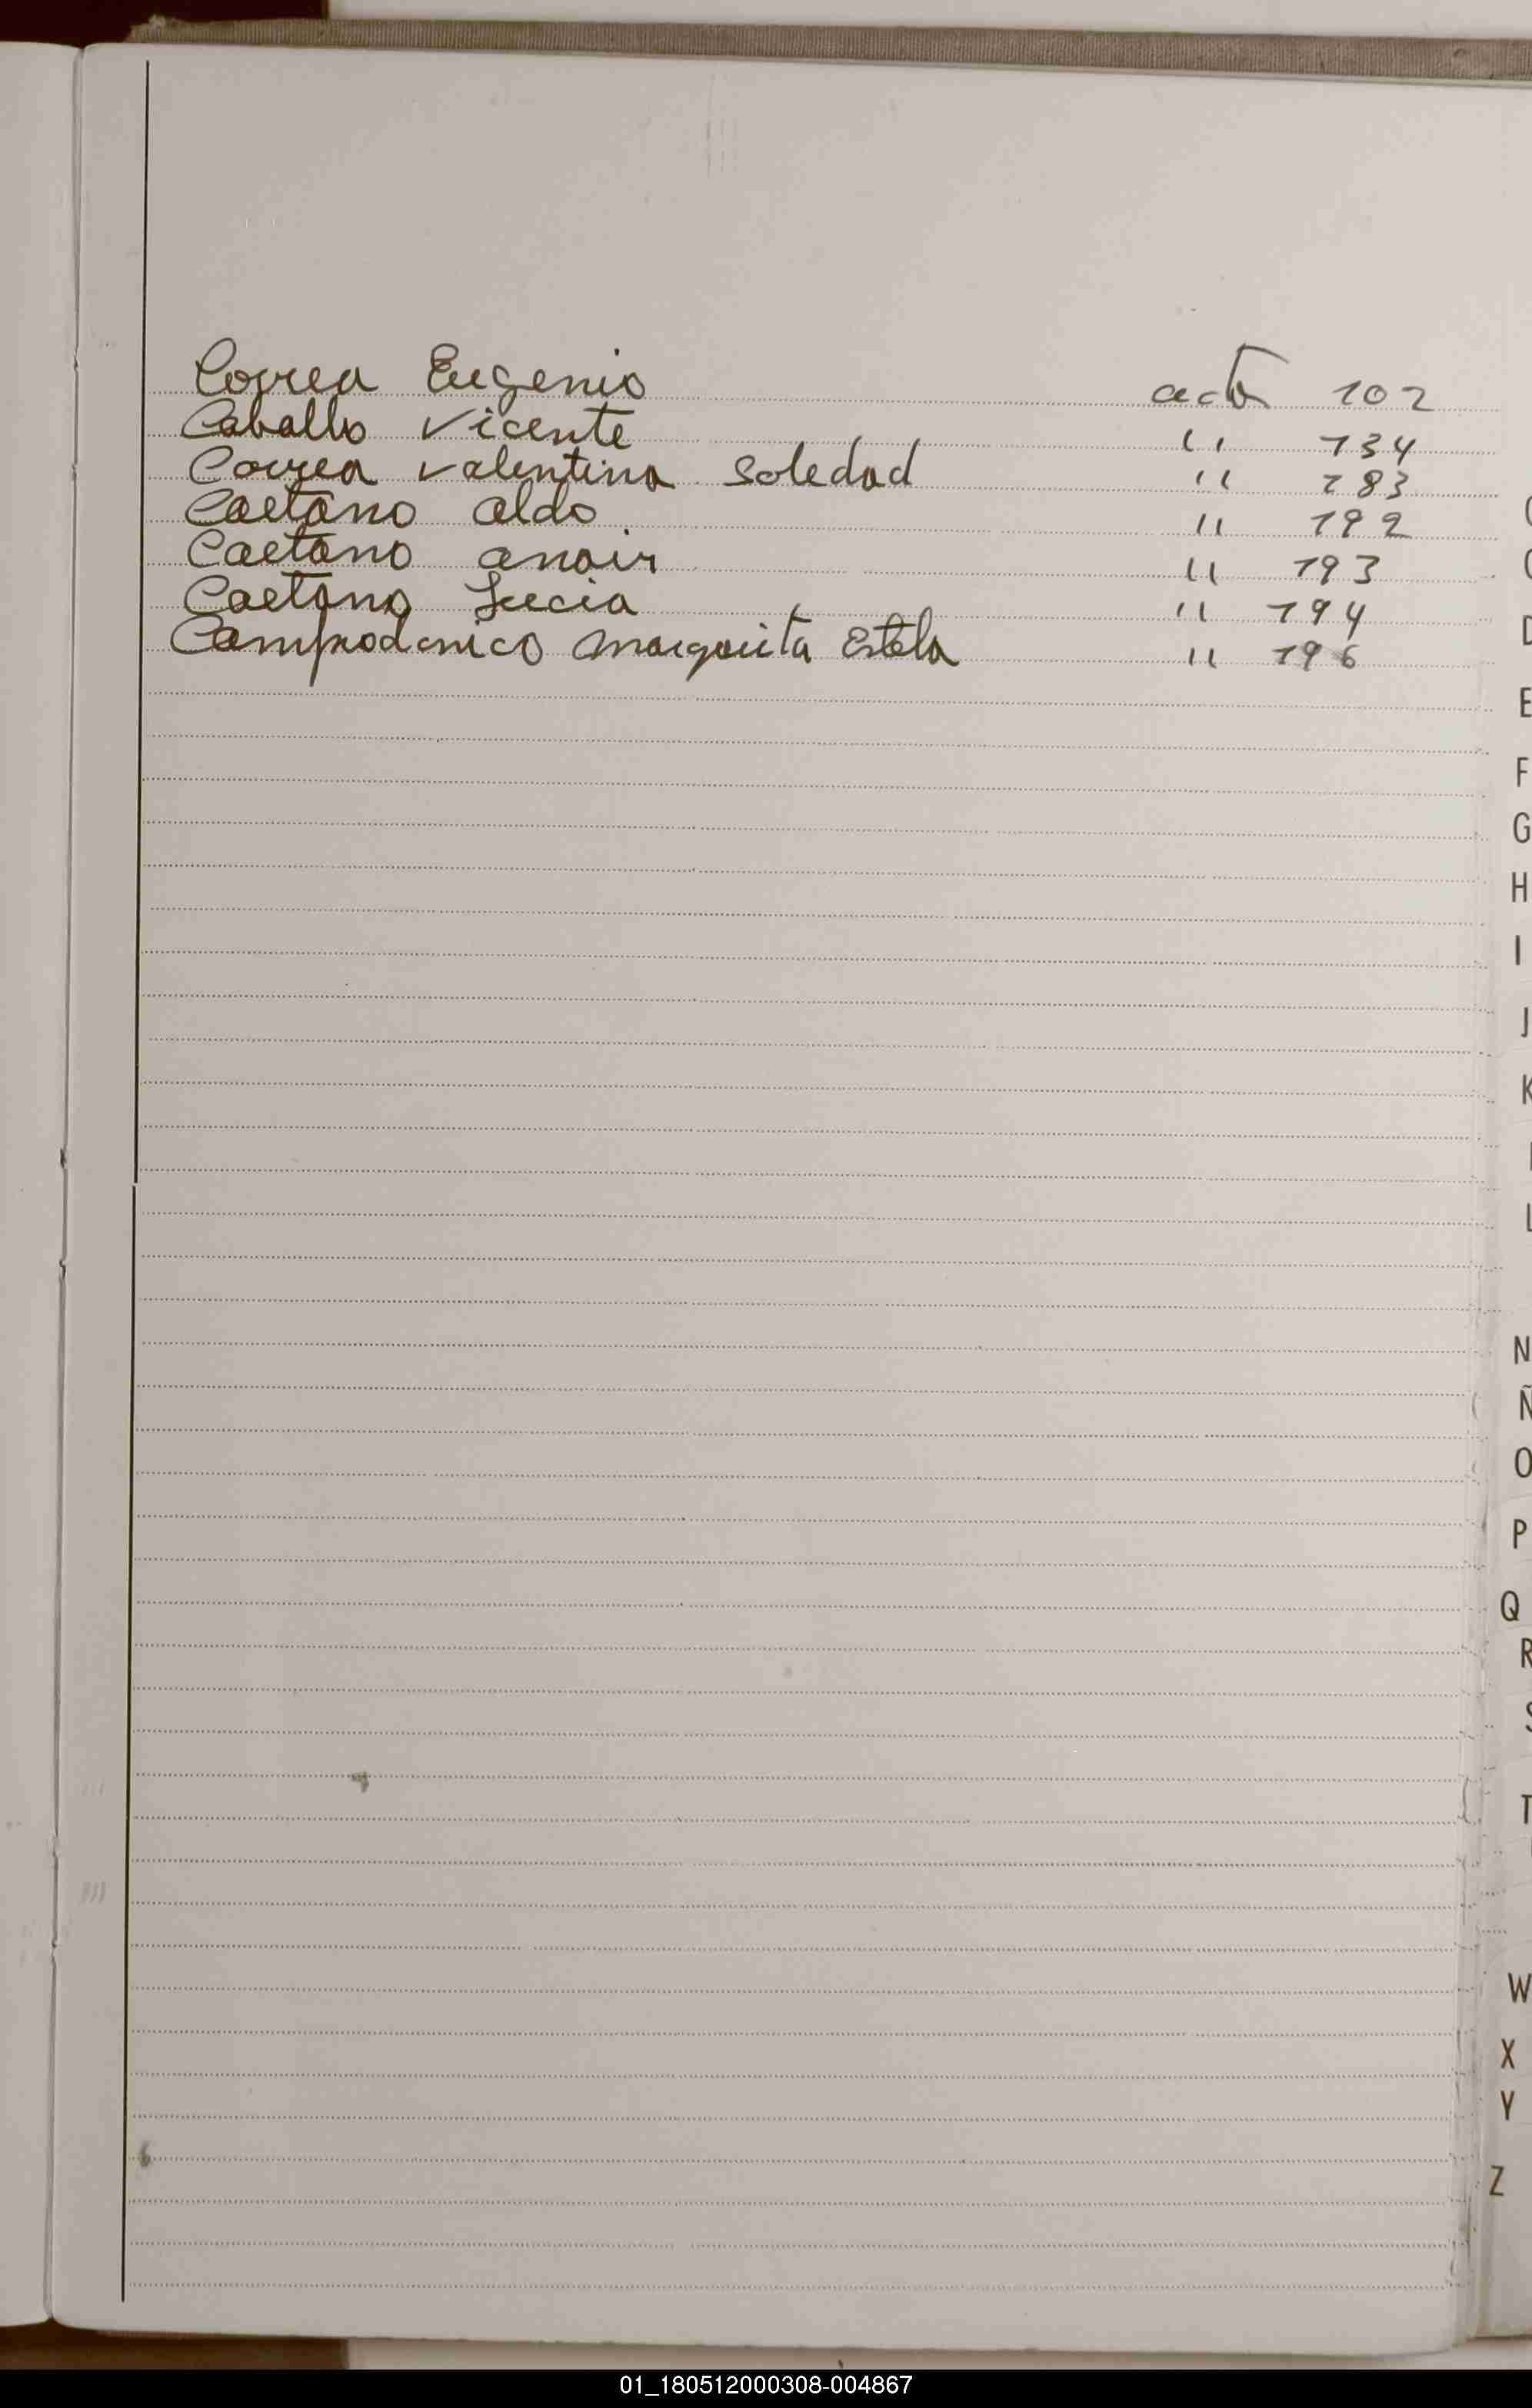 Correa Eugenio acta 102
Caballo Vicente " 134
Correa Valentina Soledad " 183
Caetano Aldo " 192
Caetano Anair " 193
Caetano Lucia " 194
Campodonico Margarita Estela " 196
D
E
F
G
H
I
J
K
L
N
Ñ
O
P
Q
R
S
T
W
X
Y
Z
01_180512000308-004867